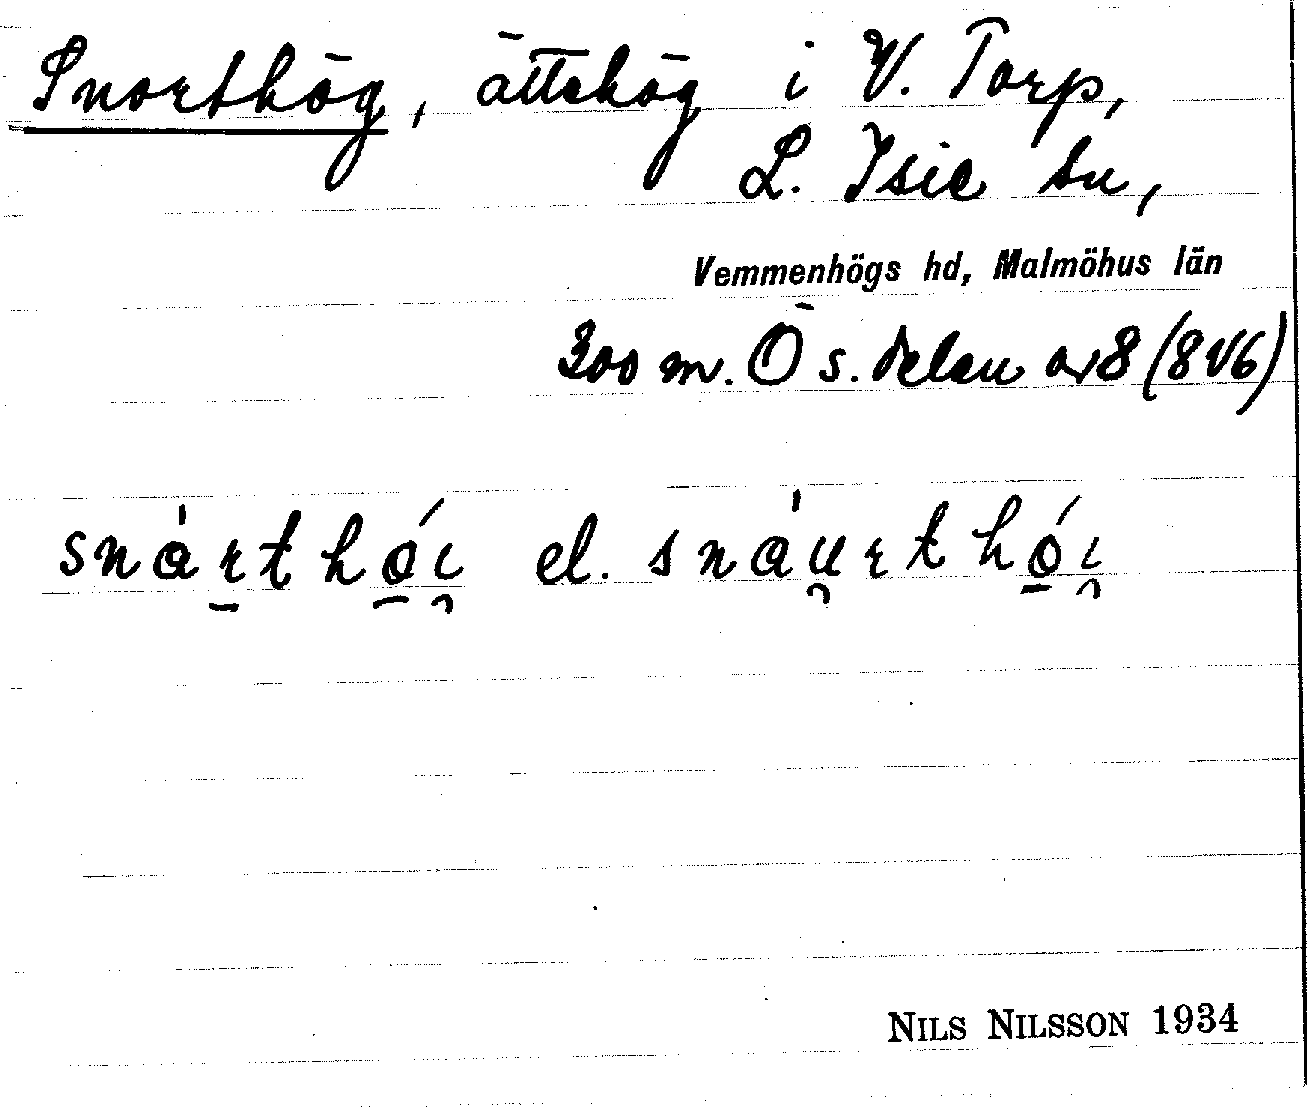 Snorthög, ättehög i V. Torp,
L. Isie sn,
Vemmenhögs hd, Malmöhus län
300 m. Ö s. delen av 8 (8 V6)
snàrthǿi̯ el. snàu̯rthǿi̯
NILS NILSSON 1934